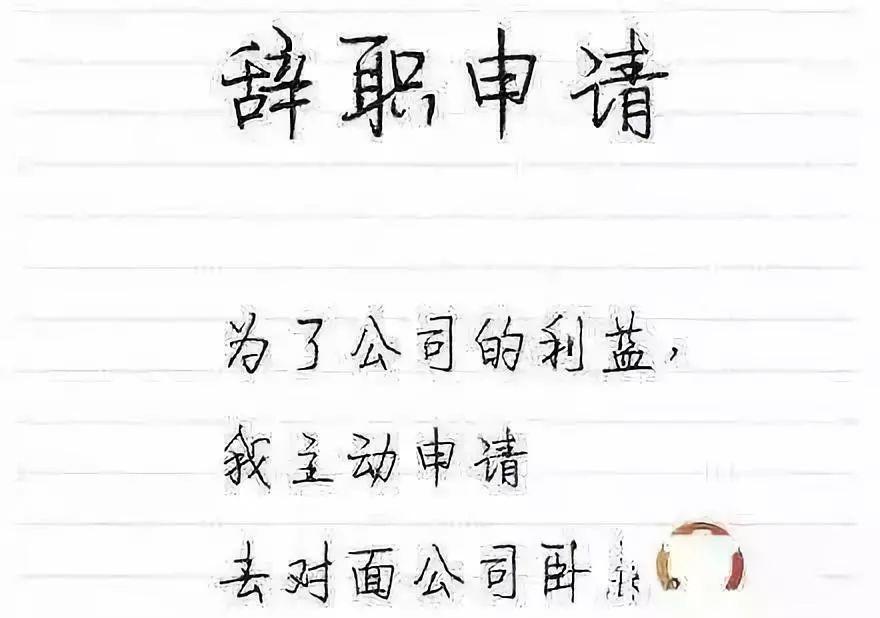 辞职申请
为了公司的利益,
我主动申请
去对面公司卧